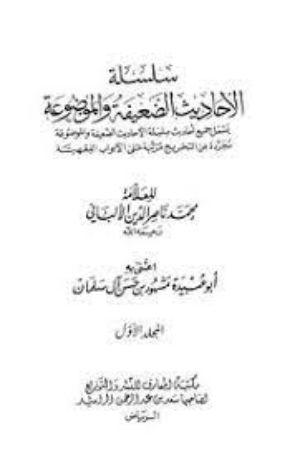 سلسلة
الأحاديث الضعيفة والموضوعة
يشمل جميع أحاديث سلسلة الأحاديث الضعيفة والموضوعة
مجردة عن التخريج مرتبة على الأبواب الفقهية
للعلامة
محمد ناصر الدين الألباني
رحمه الله
اعتنى به
أبو عبيدة مشهور بن حسن آل سلمان
المجلد الأول
مكتبة المعارف للنشر والتوزيع
لصاحبها سعد بن عبد الرحمن الراشد
الرياض